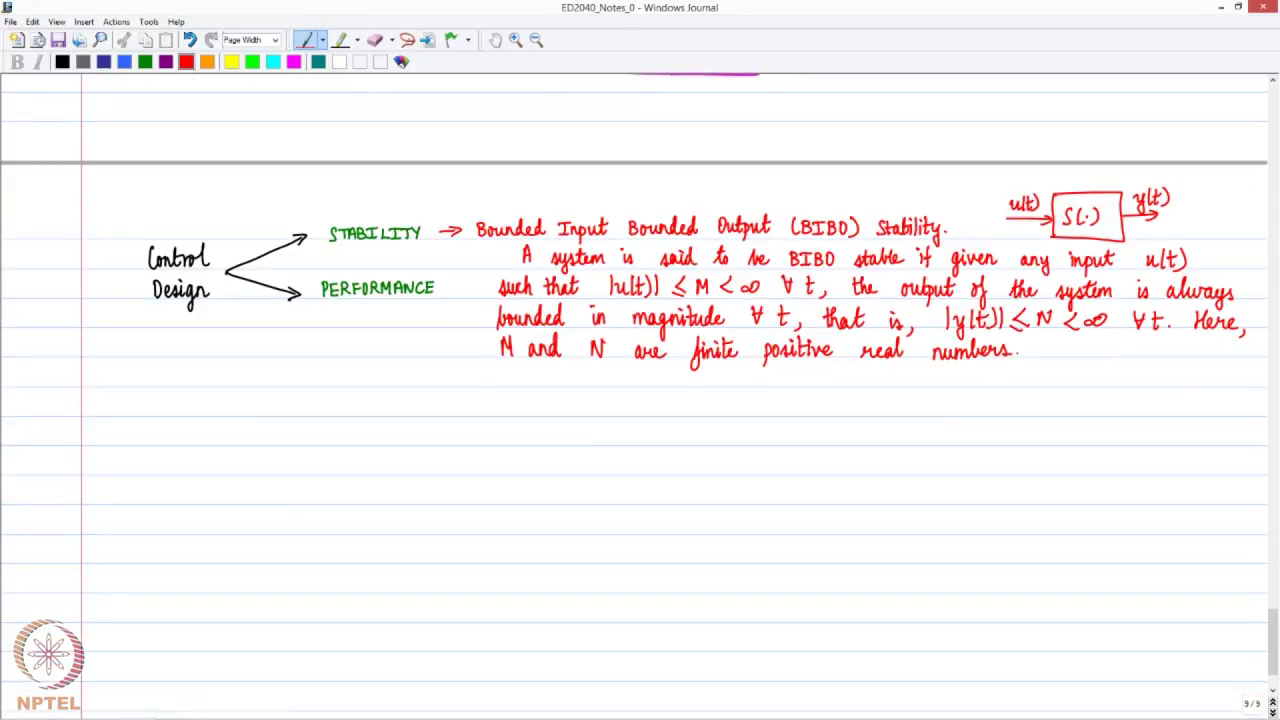 ED2040_Notes_0 - Windows Journal
File Edit View Insert Actions Tools Help
Page Width
B I
u(t) S(.) y(t)
Control Design
STABILITY → Bounded Input Bounded Output (BIBO) Stability.
PERFORMANCE
A system is said to be BIBO stable if given any input u(t)
such that |u(t)| ≤ M < ∞ ∀ t, the output of the system is always
bounded in magnitude ∀ t, that is, |y(t)| ≤ N < ∞ ∀ t. Here,
M and N are finite positive real numbers.
NPTEL
9 / 9